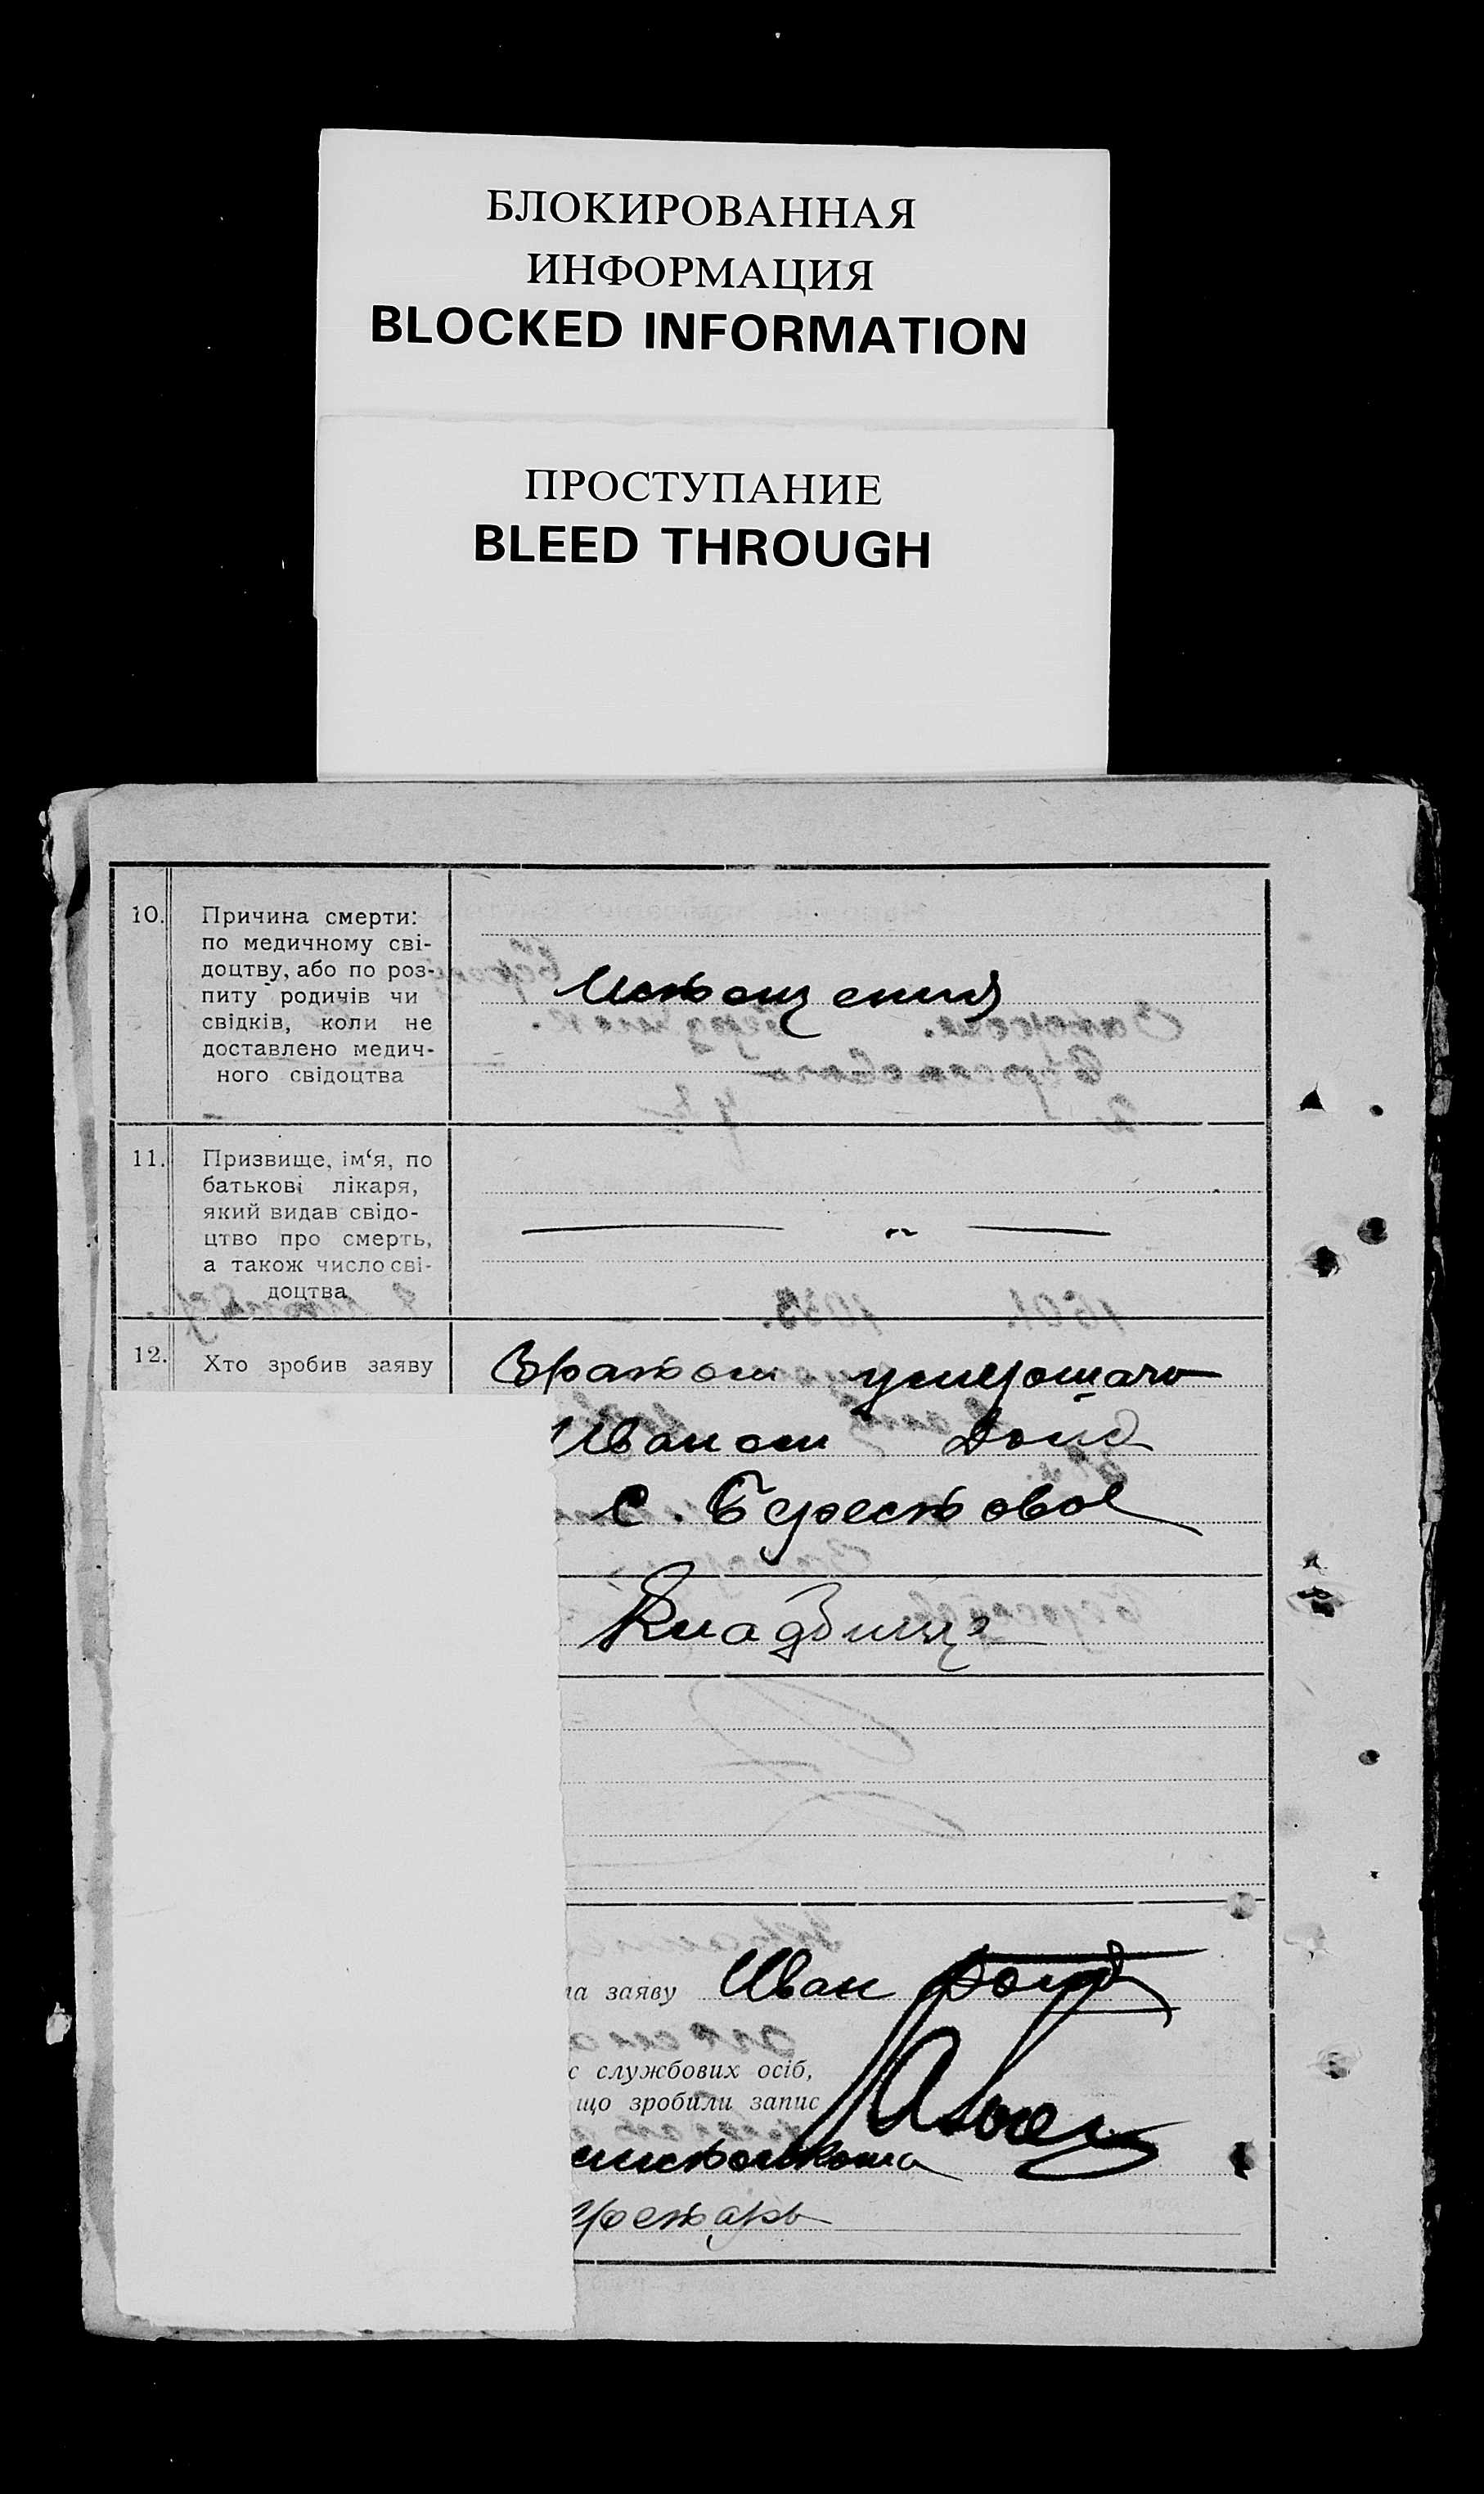 БЛОКИРОВАННАЯ
ИНФОРМАЦИЯ
BLOCKED INFORMATION
ПРОСТУПАНИЕ
BLEED THROUGH
10. Причина смерти:
по медичному сві-
доцтву, або по роз-
питу родичів чи
свідків, коли не
доставлено медич-
ного свідоцтва
Истощения
11. Призвище, ім‘я, по
батькові лікаря,
який видав свідо-
цтво про смерть,
а також число сві-
доцтва
12. Хто зробив заяву
Братом умершаго
Иваном
С. Берестовое
Кладбище
ла заяву Иван
с службових осіб,
що зробили запис